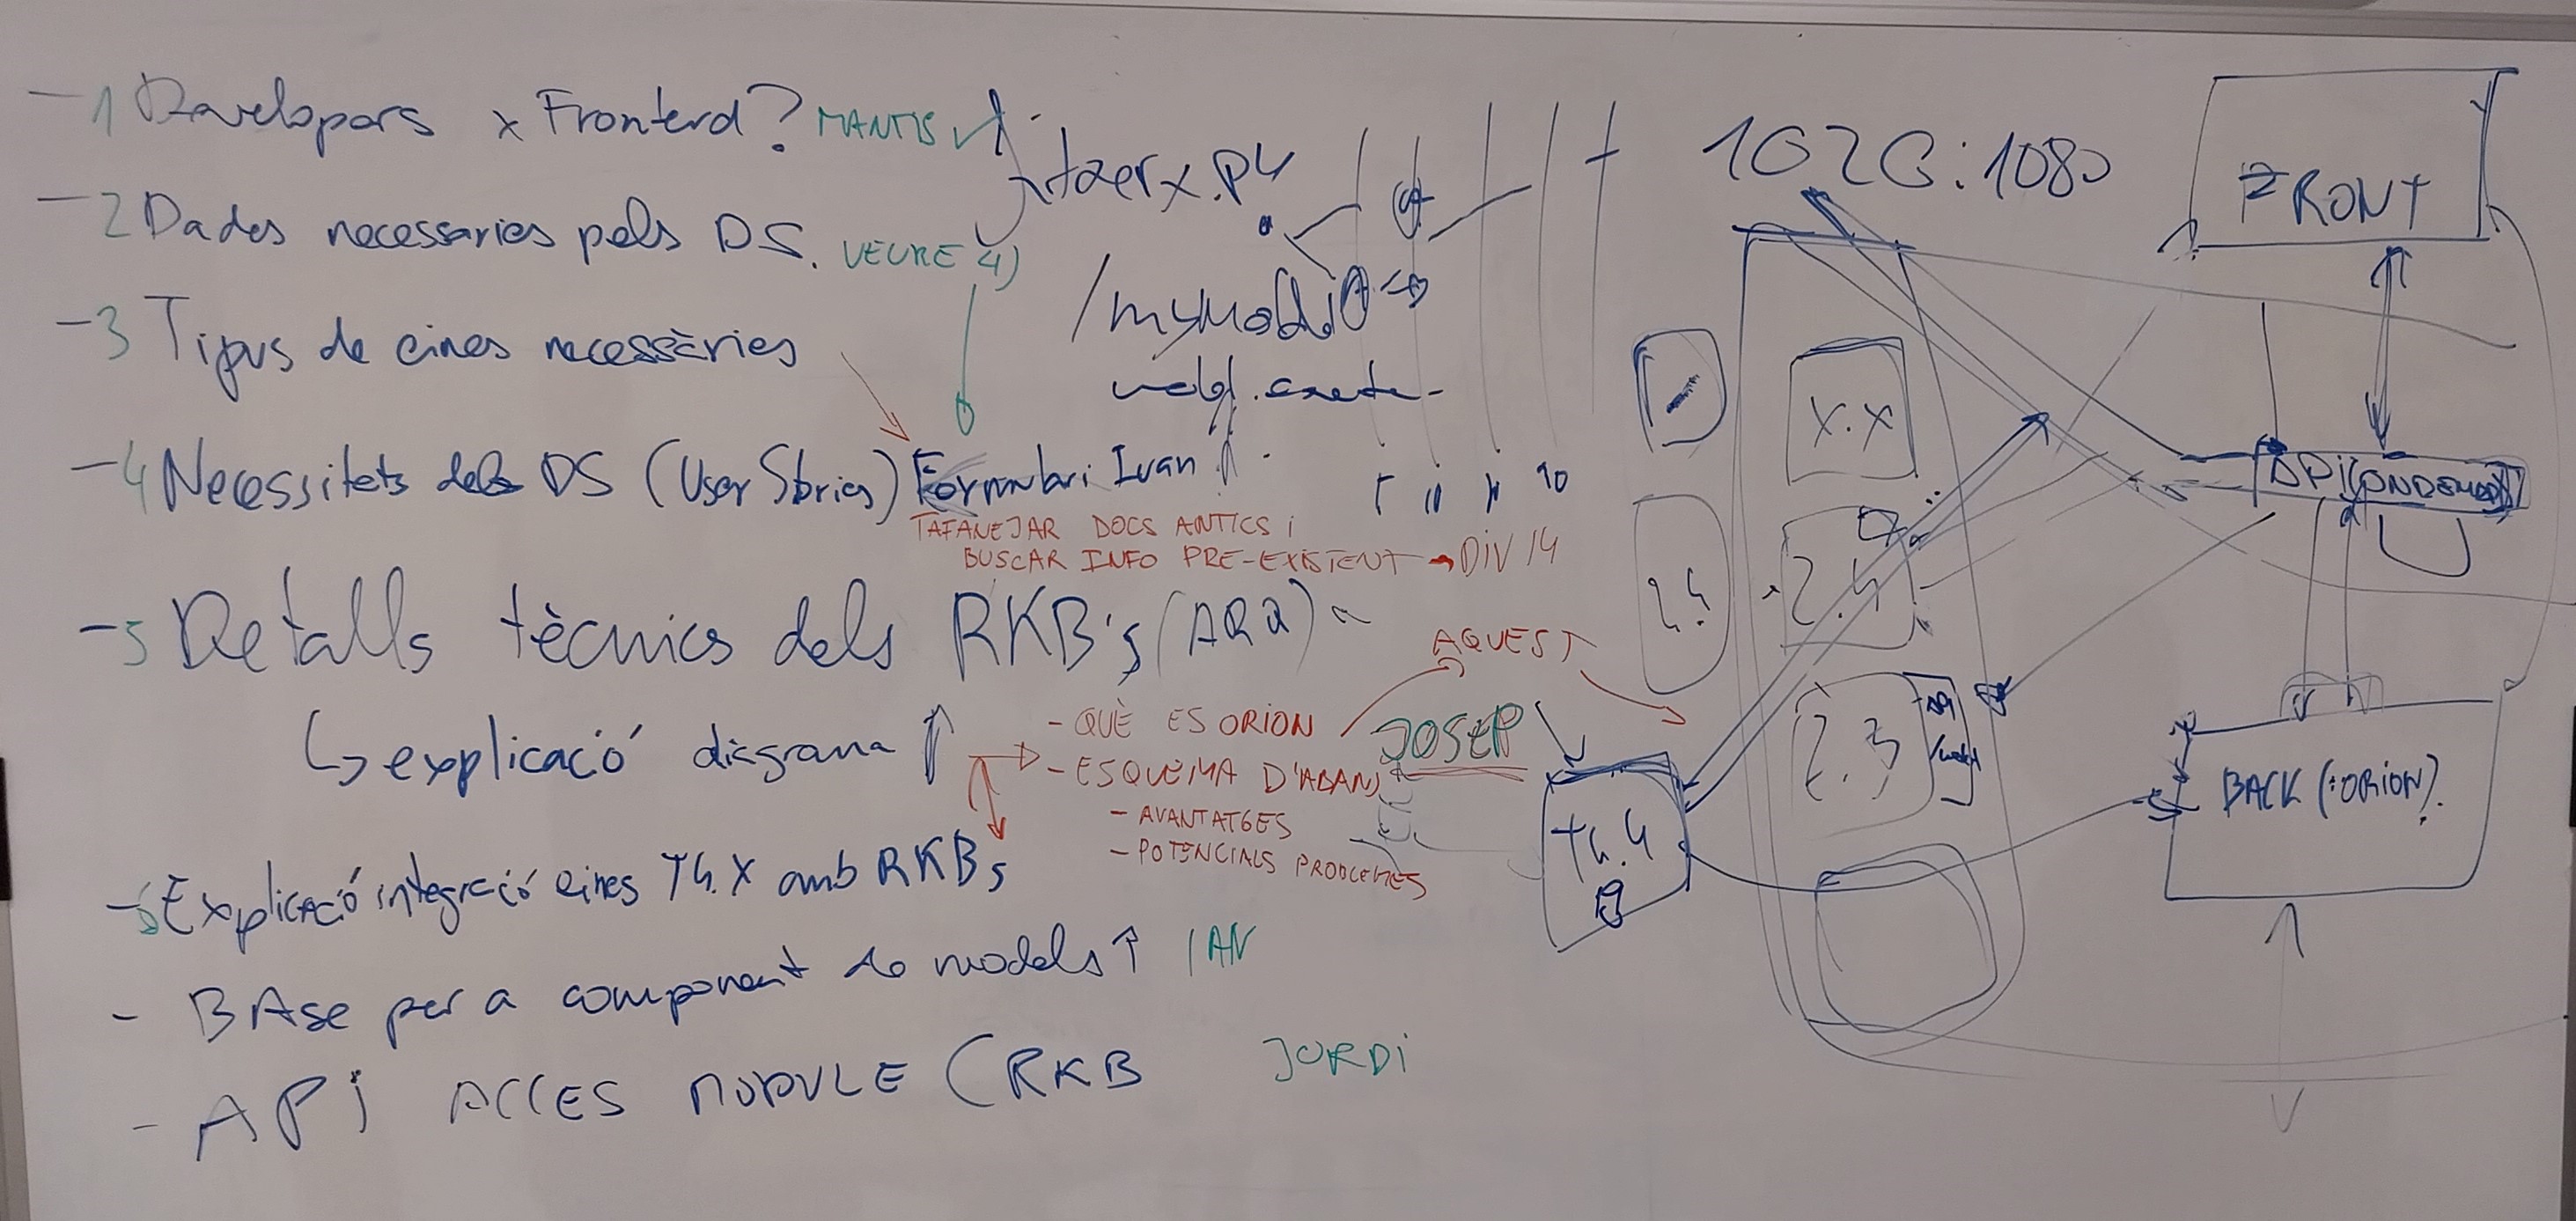 -1 Developers x Frontend? MANTIS
-2 Dades necessaries pels DS. VEURE 4)
-3 Tipus de eines necessàries
-4 Necessitats dels DS (User Stories) Formulari Ivan
TAFANEJAR DOCS ANTICS i
BUSCAR INFO PRE-EXISTENT → DIV 14
-5 Detalls tècnics dels RKB's (ARQ)
↳ explicació diagrama
- QUÈ ES ORION
- ESQUEMA D'ABANS
- AVANTATGES
- POTENCIALS PROBLEMES
AQUEST
JOSEP
-6 Explicació integració eines T4.X amb RKBs
- BASe per a component de models ↑ IAN
- APi ACCES MODULE (RKB JORDI
1020:1080
FRONT
X.X
2.4
2.4
2.3
T4.4
BACK (:ORION).